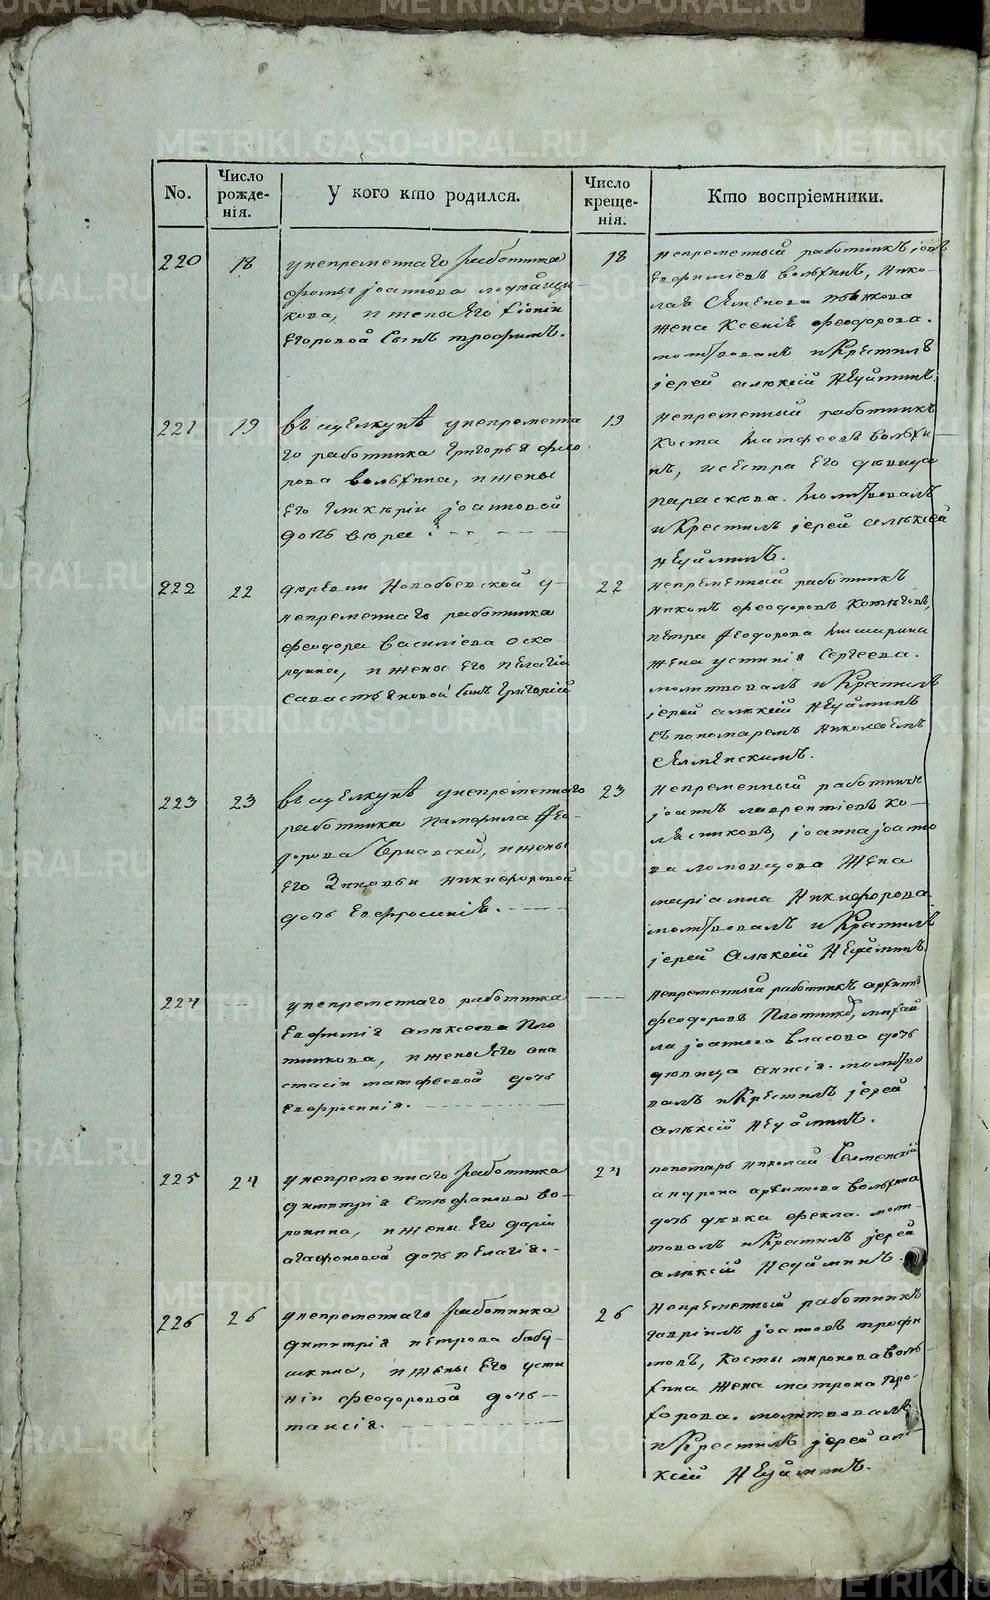 METRIKI.GASO-URAL.RU
No.
Число рожденія.
У кого кто родился.
Число крещенія.
Кто воспріемники.
220
18
унепременнаго работника
Фомы Іоаннова
кова, и жены Его
Егоровой Сынъ Трофимъ.
18
непременный работникъ
Евфиміевъ Вольхинъ, Нико-
лая Семенова
жена Ксенія Феодорова.
молитвовалъ и Крестилъ
іерей Алексій Неуйминъ.
221
19
въ Щелкунѣ унепременна
го работника Григорья Фло
рова Вольхина, и жены
Его Гликеріи Іоанновой
дочь
19
непременный работникъ
Коста Матфеевъ Вольхи-
нъ, и сестра Его девица
Параскева. Молитвовалъ
и Крестилъ іерей Алексей
Неуйминъ.
222
22
деревни Новобоевской у-
непременнаго работника
Феодора Василіева Оско-
лкина, и жены Его Пелагіи
Савастьяновой Сынъ Григорій
22
непременный работникъ
Никонъ Феодоровъ
Петра Феодорова
жена Устинія Сергеева.
молитвовалъ и Крестилъ
іерей Алексій Неуйминъ
съ пономаремъ Николаемъ
223
23
въ Щелкунѣ унепременнаго
работника Памфила Фео-
дорова Чернавски, и жены
Его Зиновьи Никифоровой
дочь Евфросинія.
23
непременный работникъ
Іоаннъ Лаврентіевъ Ко-
лясниковъ, Іоанна Іоанно
ва Жена
Маріамна Никифорова
молитвовалъ и Крестилъ
іерей Алексій Неуйминъ.
224
унепременнаго работника
Евфимія Алексеева Пло
тникова, и жены Его Ана
стасіи Матфеевой дочь
Евфросинія.
непременный работникъ Архипъ
Феодоровъ Плотниковъ, Михай
ла Іоаннова Власова дочь
девица Анисія. молитво
валъ и Крестилъ іерей
Алексій Неуйминъ.
225
24
унепременнаго работника
Димитрія Стефанова Во-
ронина, и жены Его Даріи
Агафоновой дочь Пелагія.
24
пономарь Николай
Андрона Архипова Вольхина
дочь девка Фекла. моли-
твовалъ и Крестилъ іерей
Алексій Неуйминъ.
226
26
унепременнаго работника
Димитрія Петрова Бабу-
шкина, и жены Его Усти
ніи Феодоровой дочь
Таисія.
26
непременный работникъ
Гавріилъ Іоанновъ Трофи
мовъ, Косты Миронова Воль-
хина жена Матрона Про-
хорова. молитвовалъ
и Крестилъ іерей Але-
ксій Неуйминъ.